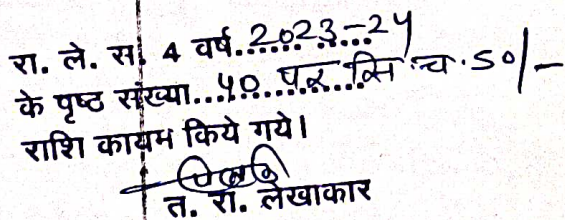 रा. ले. स. 4 वर्ष..2023-24
के पृष्ठ संख्या...40 पर सि.च.50/-
राशि कायम किये गये।
त. रा. लेखाकार